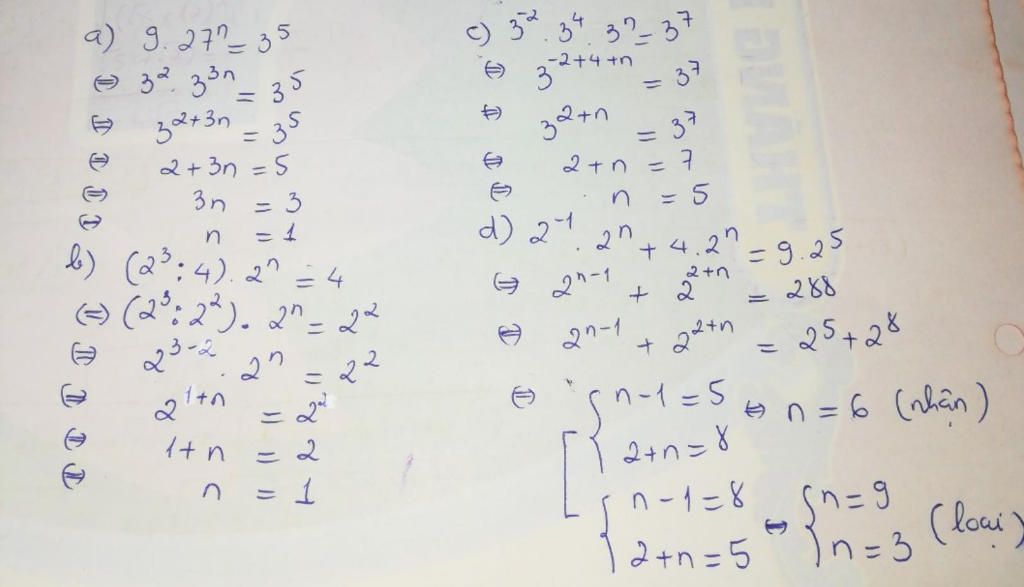 a) 9 . 27ⁿ = 3⁵
⇔ 3² . 3³ⁿ = 3⁵
⇔ 3²⁺³ⁿ = 3⁵
⇔ 2 + 3n = 5
⇔ 3n = 3
⇔ n = 1
b) (2³ : 4) . 2ⁿ = 4
⇔ (2³ : 2²) . 2ⁿ = 2²
⇔ 2³⁻² . 2ⁿ = 2²
⇔ 2¹⁺ⁿ = 2²
⇔ 1 + n = 2
⇔ n = 1
c) 3⁻² . 3⁴ . 3ⁿ = 3⁷
⇔ 3⁻²⁺⁴⁺ⁿ = 3⁷
⇔ 3²⁺ⁿ = 3⁷
⇔ 2 + n = 7
⇔ n = 5
d) 2⁻¹ . 2ⁿ + 4 . 2ⁿ = 9 . 2⁵
⇔ 2ⁿ⁻¹ + 2²⁺ⁿ = 288
⇔ 2ⁿ⁻¹ + 2²⁺ⁿ = 2⁵ + 2⁸
⇔ [ { n - 1 = 5 ⇔ n = 6 (nhận)
2 + n = 8
{ n - 1 = 8 ⇔ { n = 9 (loại)
2 + n = 5 n = 3